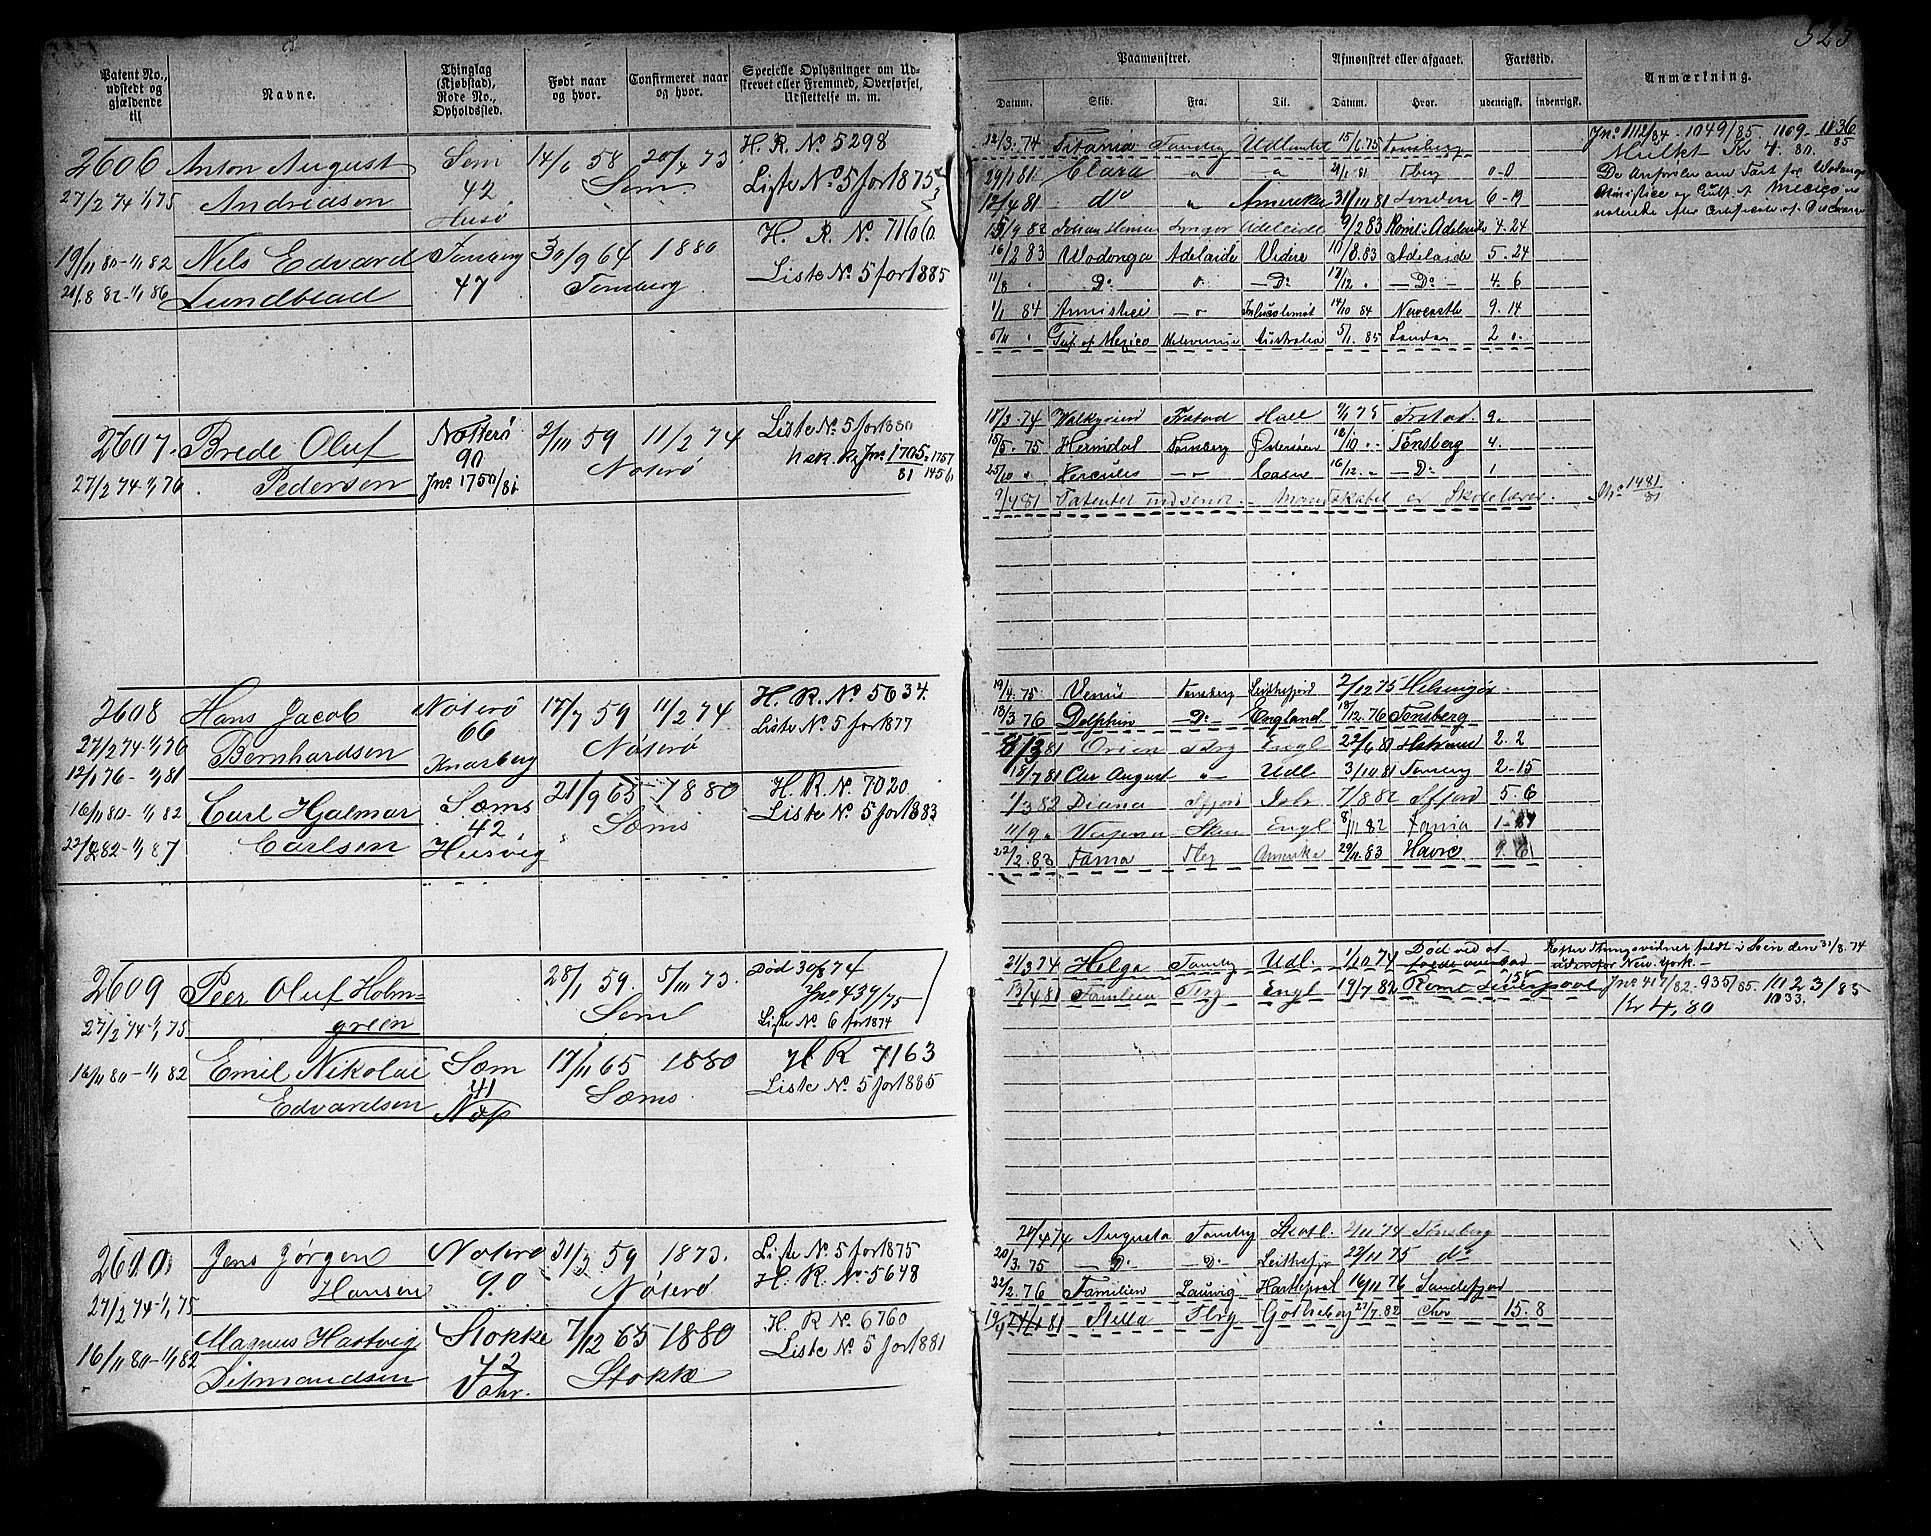 525
Patent No., udstedt og gjældende til
Navne.
Thinglag (Kjøbstad), Rode No., Opholdssted.
Født naar og hvor.
Confirmeret naar og hvor.
Specielle Oplysninger om Udskrevet eller Fremmed, Overførsel, Udslettelse m. m.
Paamønstret.
Afmønstret eller afgaaet.
Fartstid.
Anmærkning.
Datum. Skib. Fra. Til. Datum. Hvor. udenrigsk. indenrigsk.
2606 Anton August Sem 14/6 58 20/4 73 H. R. No 5298
27/2 74 1/1 75 Andreasen 42 Sem Liste No. 5 for 1875
Husø
19/11 80 - 1/1 82 Nils Edvard Tønsberg 30/9 64 1880 H. R. No. 7166
21/8 82 - 1/1 86 Lundblad 47 Tønsberg Liste No. 5 for 1885
12/3. 74 Titania Tønsberg Udlandet 15/6 75 Tønsberg
29/1 81 Clara 21/1 81 Tberg 0-0
12/4 81 do Amerika 31/10 81 London 6-19
9/2 83 Adelaide 4-24
16/2 83 Wodonga Adelaide Videre 10/8. 83 Adelaide 5. 24
11/8 Do Do 17/12 Do 4. 6
1/1 84 Armistice 14/10 84 Newcastle 9. 14
5/11 Gulf of Mexico Australia 5/1. 85 London 2
Jno 1112/84 - 1049/85. 1109 - 1136/85
Mulkt Kr 4. 80.
2607. Brede Oluf Nøtterø 2/11 59 11/2 74 Liste No. 5 for 1880
27/2 74 1/1 76 Pedersen 90 Nøterø
Jno. 1750/81
18/3. 74 Walkyrien Frstad Hull 9/1 75 Frstad. 9.
15/5. 75 Heimdal Tønsberg Østersøen 12/10 Tønsberg 4.
25/10 Hercules Caen 16/12 Do 1
9/7 81 Patentet indsendt. Mandskabet er Skolelærer.
Jno 1481/81
2608 Hans Jacob Nøterø 17/7 59 11/2 74 H. R. No 5634.
27/2 74 1/1 76 Bernhardsen 66 Nøterø Liste No. 5 for 1877
12/1 76 - 1/1 81 Knarberg
16/11 80 - 1/1 82 Carl Hjalmar Sæms 21/9 65 1880 H. R. No. 7020.
22/2 82 - 1/1 87 Carlsen 42. Sæms Liste No. 5 for 1883
Husvig
19/4. 75 Venus Tønsberg Leithsfjord 2/12 75 Helsingør
18/3 76 Dolphin Do England 18/12. 76 Tønsberg
8/3 81 Orion Tbrg Engl 22/6 81 2. 2
18/7 81 Chr August Udl 3/10 81 Tønsberg 2-15
1/3 82 Diana Sfjord Isb 7/8 82 Sfjord 5. 6
11/9 Skien Engl 8/11 82
22/2. 83 Fama Tbrg Amerika 29/11. 83 Havre 9.
2609 Peer Oluf Holm= 28/1 59. 5/10 73. Død 30/8 74
27/2 74 - 1/1 75 green Sem Jno 439/75
Liste No. 6 for 1874
16/11 80 - 1/1 82 Emil Nikolai Sæm 17/11 65 1880 H R 7163
Edvardsen 41 Sæms. Liste No. 5 for 1885
Næs
21/3 74 Helga Tønsberg Udl. 1/10 74 Død ved at falde overbord
Efter Retningsvidner faldt i Søen den 31/8. 74
udenfor New. York.
13/4 81 Familien Tbrg Engl 19/7 82 Rømt Liverpool
Jno 417/82. 935/85. 1023/85
1033.
Kr 4,80
2610. Jens Jørgen Nøterø 31/3 59 1873. Liste No. 5 for 1875
27/2 74 - 1/1 75 Hansen 90 Nøterø H. R. No 5648
16/11 80 - 1/1 82 Magnus Hartvig Stokke 7/12 65 1880 H R No. 6760
Ditmandsen 42 Stokke Liste No. 5 for 1881
20/4 74 Augusta Tønsberg Skotl. 2/11 74 Tønsberg
20/3. 75 Do Do Leithsfjor 22/11 75 do
22/2. 76 Familien Laurvig Hartlepool 16/11 76 Sandefjord
Stella Tbrg Gothebrg 27/7. 82 15. 8